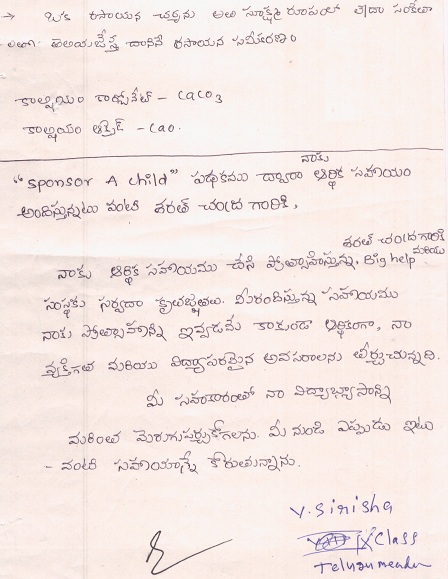 → ఒక రసాయన చర్యను అతి సూక్ష్మ రూపంలో లేదా సంకేతా
లతో తెలియజేస్తే దానినే రసాయన సమీకరణం
కాల్షియం కార్బోనేట్ - CaCO3
కాల్షియం ఆక్సైడ్ - CaO.
"Sponsor A child" పథకము ద్వారా నాకు ఆర్థిక సహాయం
అందిస్తున్నటు వంటి శరత్ చంద్ర గారికి,
నాకు ఆర్థిక సహాయము చేసి ప్రోత్సాహిస్తున్న, శరత్ చంద్ర గారికి మరియు Big help
సంస్థకు సర్వదా కృతజ్ఞతలు. మీరందిస్తున్న సహాయము
నాకు ప్రోత్సాహాన్ని ఇవ్వడమే కాకుండా ఆర్థికంగా, నా
వ్యక్తిగత మరియు విద్యాపరమైన అవసరాలను తీర్చుచున్నది.
మీ సహకారంతో నా విద్యాభ్యాసాన్ని
మరింత మెరుగుపర్చుకోగలను. మీ నుండి ఎప్పుడు ఇటు
- వంటి సహాయాన్నే కోరుతున్నాను.
Y. Sirisha
IX Class
Telugu medium